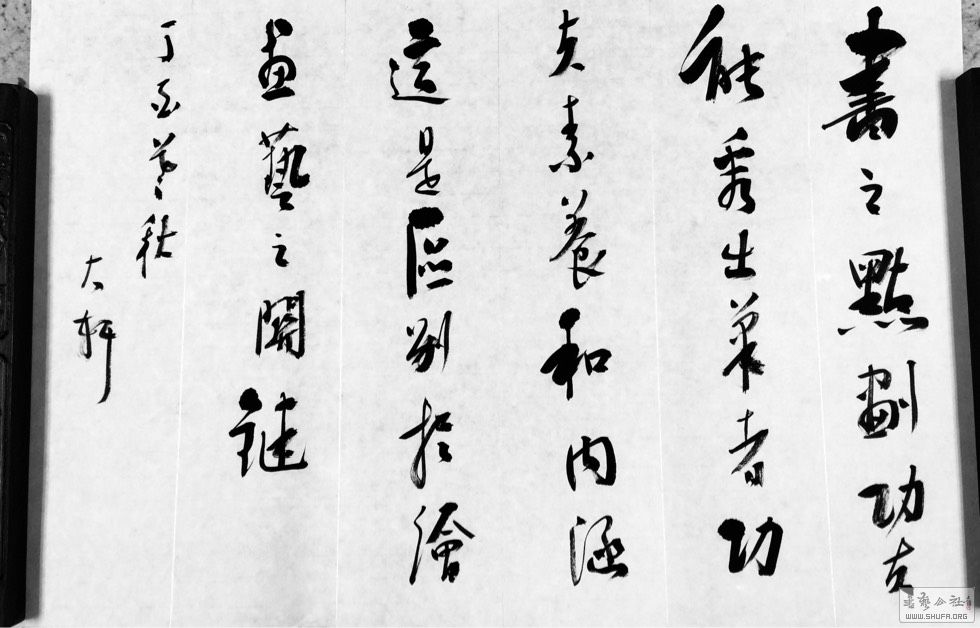 書之點劃功夫
能看出筆者功
夫素養和內涵
這是區別於繪
畫藝之關鍵
丁酉暮秋
大
書藝公社
WWW.SHUFA.ORG